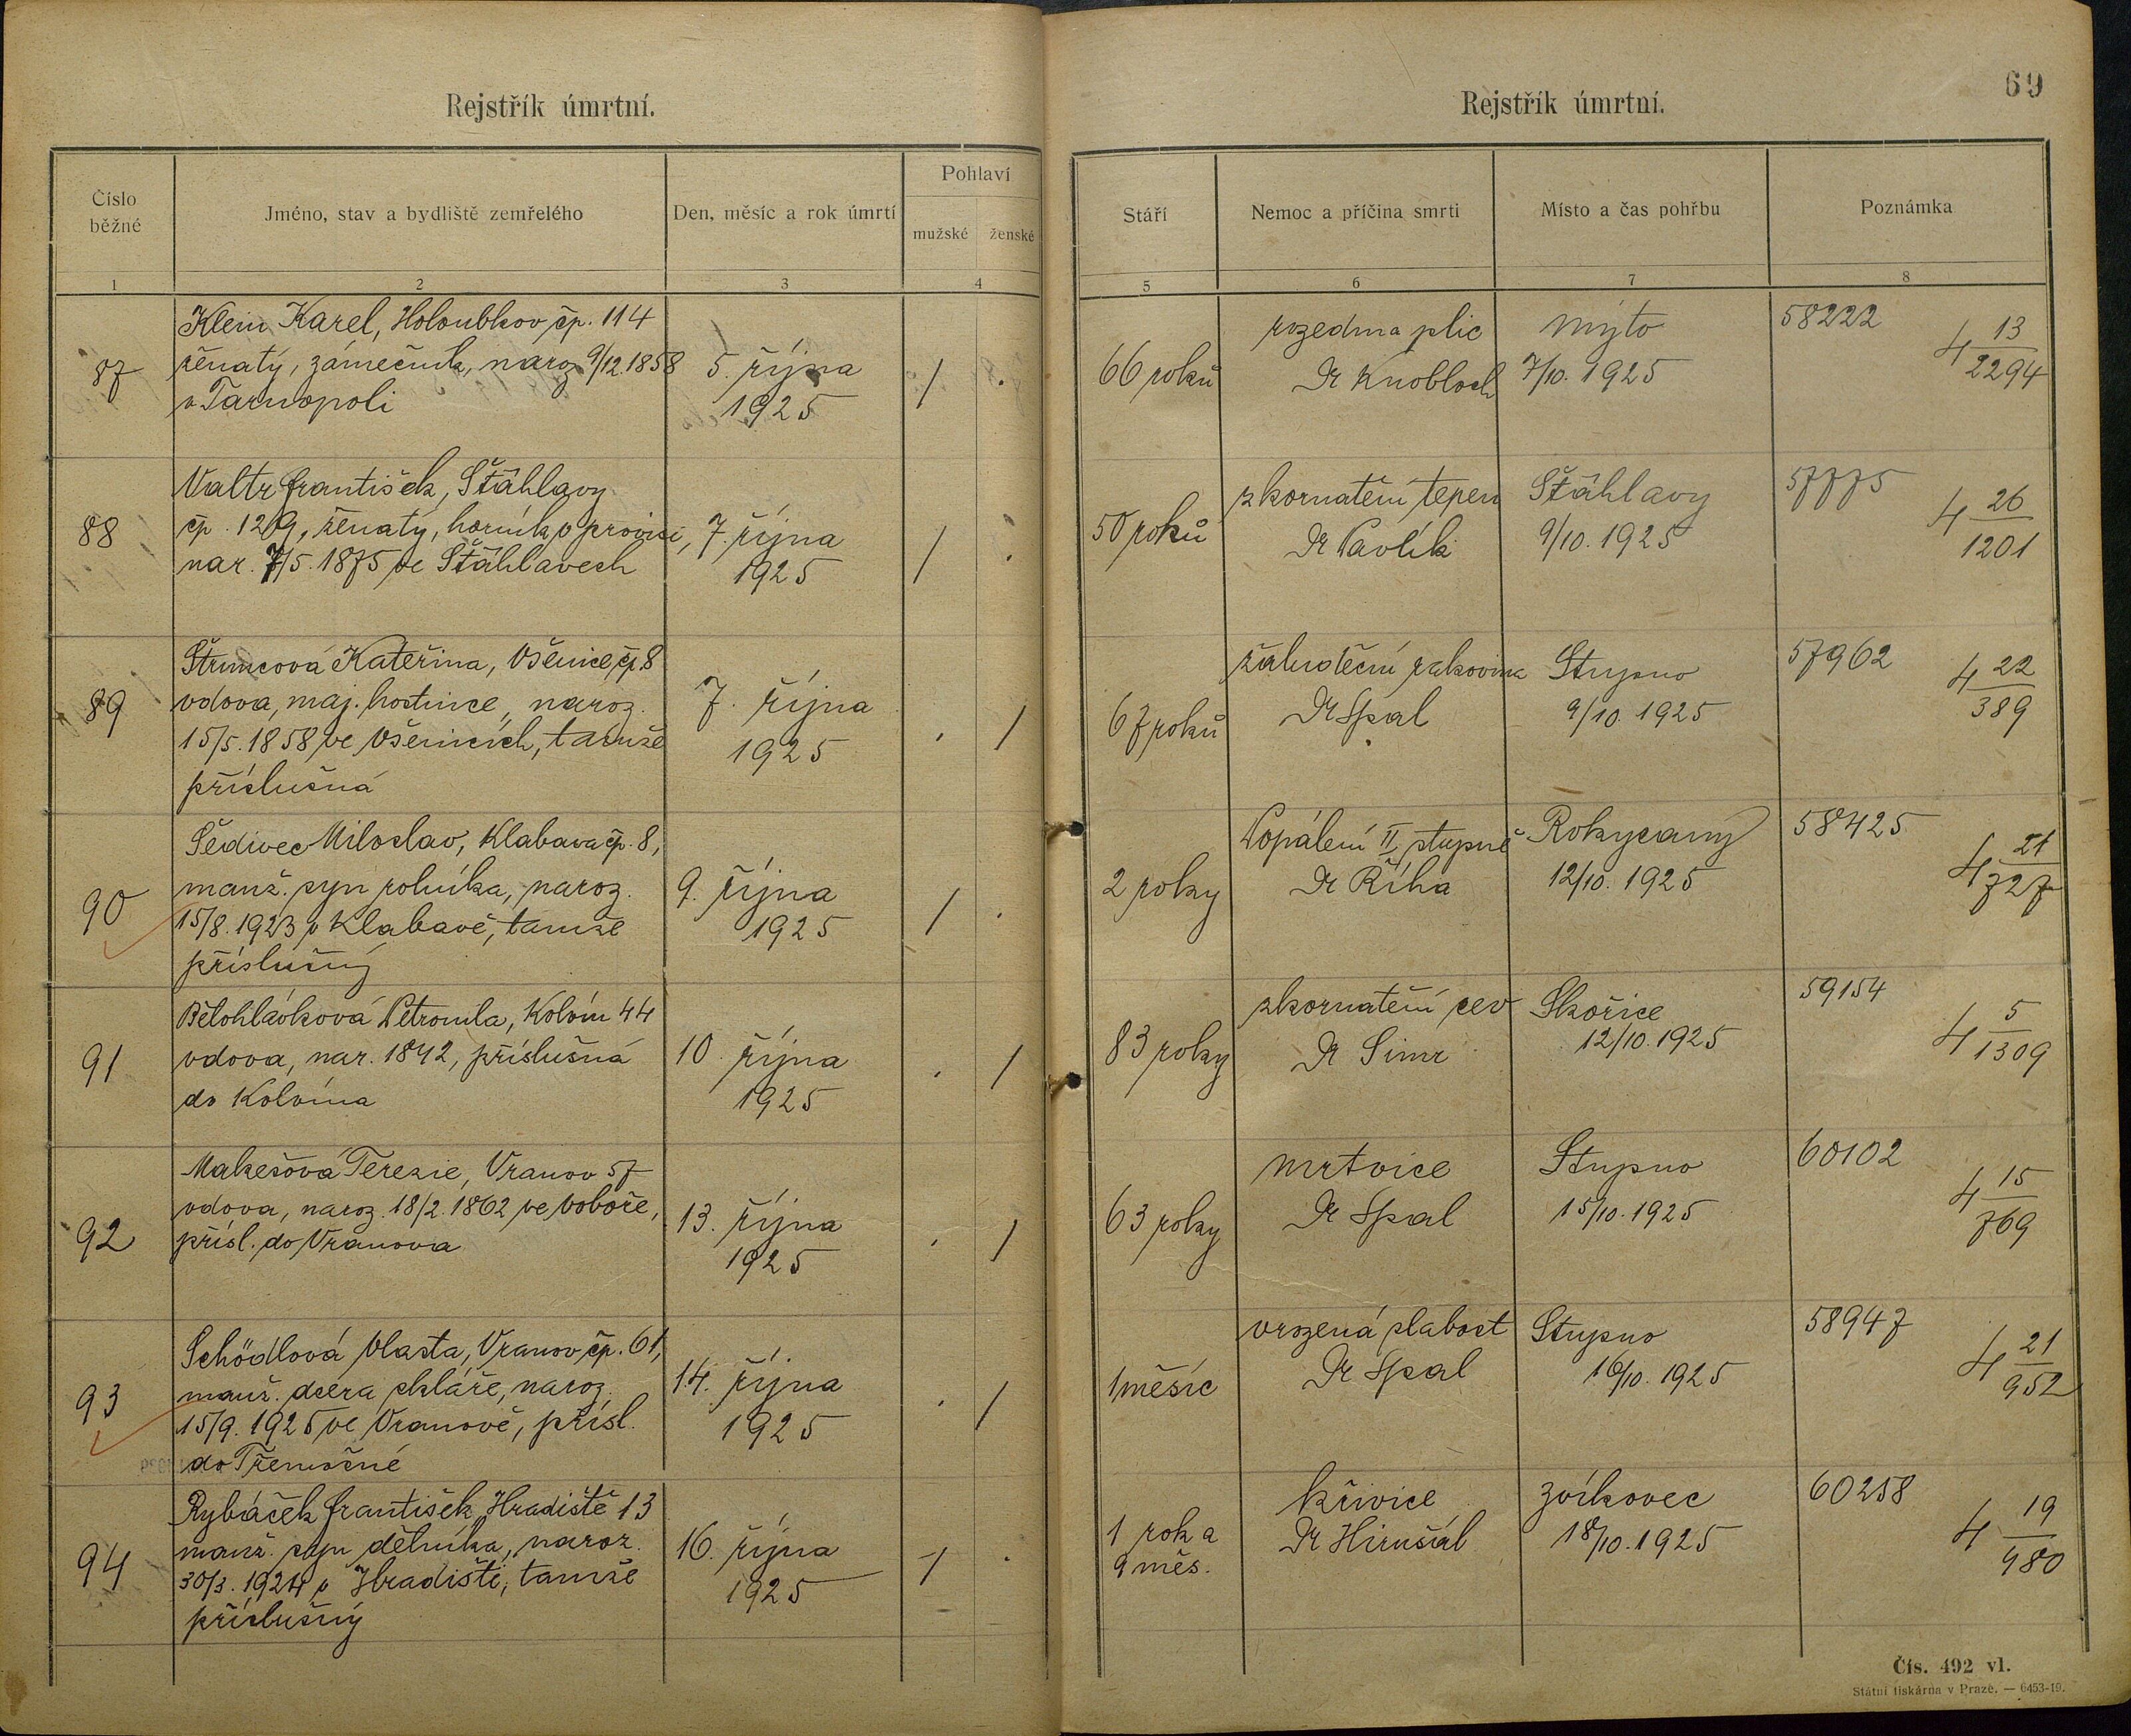 Rejstřík úmrtní.
Číslo běžné
Jméno, stav a bydliště zemřelého
Den, měsíc a rok úmrtí
Pohlaví
mužské
ženské
1
2
3
4
87
Klein Karel, Holoubkov čp. 114
ženatý, zámečník, naroz 9/12.1858
v Tarnopoli
5. října
1925
/ .
88
Valtr František, Štáhlavy
čp. 129, ženatý, horník v provisi,
nar. 7/5. 1875 ve Štáhlavech
7. října
1925
/ .
89
Štruncová Kateřina, Všenice čp. 8
vdova, maj. hostince, naroz.
15/5. 1858 ve Všenicích, tamže
příslušná
7. října
1925
. /
90
Šedivec Miloslav, Klabava čp. 8,
manž. syn rolníka, naroz.
15/8. 1923 v Klabavě, tamže
příslušný
9. října
1925
/ .
91
Bělohlávková Petronila, Kolvín 44
vdova, nar. 1842, příslušná
do Kolvína
10. října
1925
. /
92
Makešová Terezie, Vranov 57
vdova, naroz. 18/2. 1862 ve Voboře,
přísl. do Vranova
13. října
1925
. /
93
Schödlová Vlasta, Vranov čp. 61,
manž. dcera skláře, naroz.
15/9. 1925 ve Vranově, přísl.
do Třemošné
14. října
1925
. /
94
Rybáček František, Hradiště 13
manž. syn dělníka, naroz.
30/3. 1924 v Hradišti, tamže
příslušný
16. října
1925
/ .
69
Rejstřík úmrtní.
Stáří
Nemoc a příčina smrti
Místo a čas pohřbu
Poznámka
5
6
7
8
66 roků
rozedma plic
Dr Knobloch
Mýto
7/10. 1925
58222
4 13/2294
50 roků
zkornatění tepen
Dr Pavlík
Štáhlavy
9/10. 1925
57775
4 26/1201
67 roků
žaludeční rakovina
Dr Spal
Stupno
9/10. 1925
57962
4 22/389
2 roky
Popálení II. stupně
Dr Říha
Rokycany
12/10. 1925
58425
4 21/727
83 roky
zkornatění cev
Dr Simr
Skořice
12/10. 1925
59154
4 5/1309
63 roky
mrtvice
Dr Spal
Stupno
15/10. 1925
60102
4 15/769
1 měsíc
vrozená slabost
Dr Spal
Stupno
16/10. 1925
58947
4 21/952
1 rok a
9 měs.
křivice
Dr Hirušál
Zvíkovec
18/10. 1925
60258
4 19/980
Čís. 492 vl.
Státní tiskárna v Praze. — 6453-19.